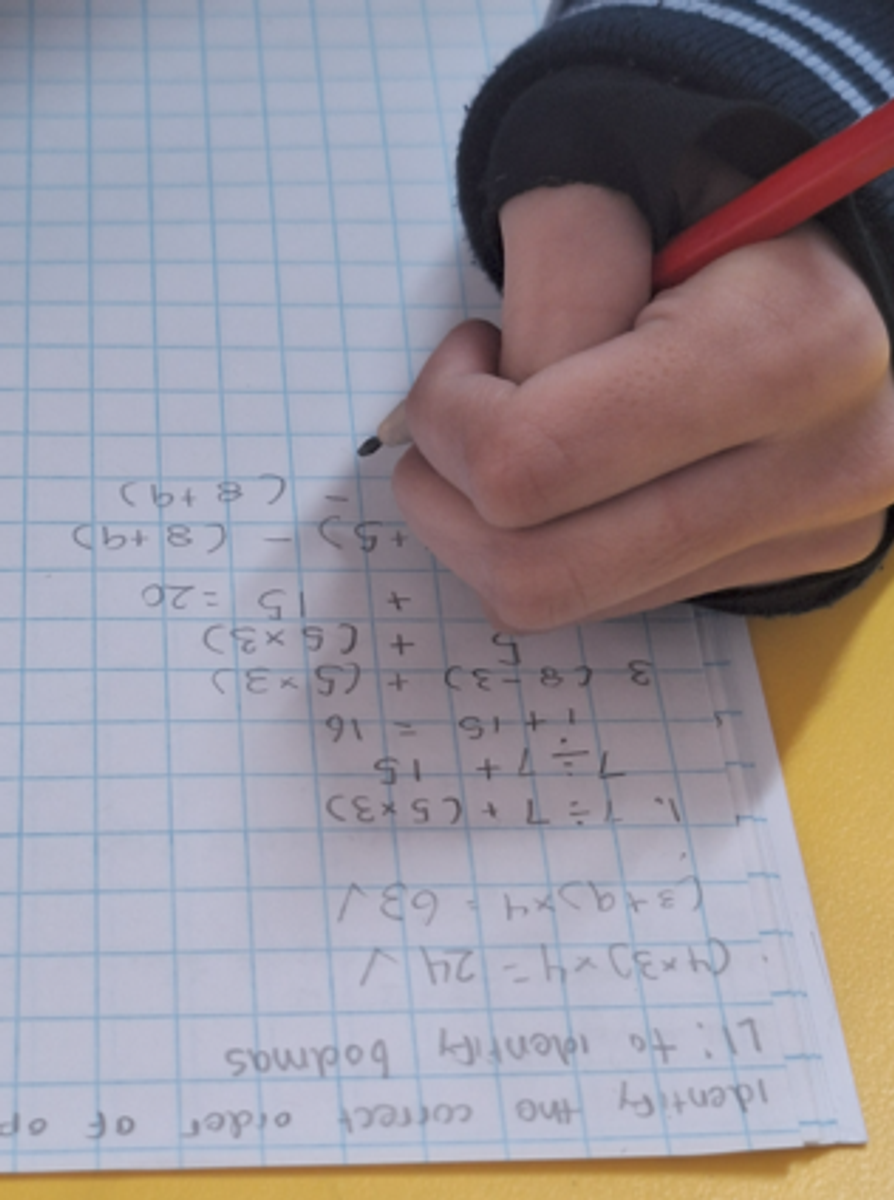 identify the correct order of op
LI: to identify bodmas
(4×3)×4 = 24 ✓
(3+9)×4 = 63 ✓
1. 7÷7 + (5×3)
7÷7 + 15
1 + 15 = 16
3 (8-3) + (5×3)
5 + (5×3)
+ 15 = 20
+5) - (8+9)
- (8+9)